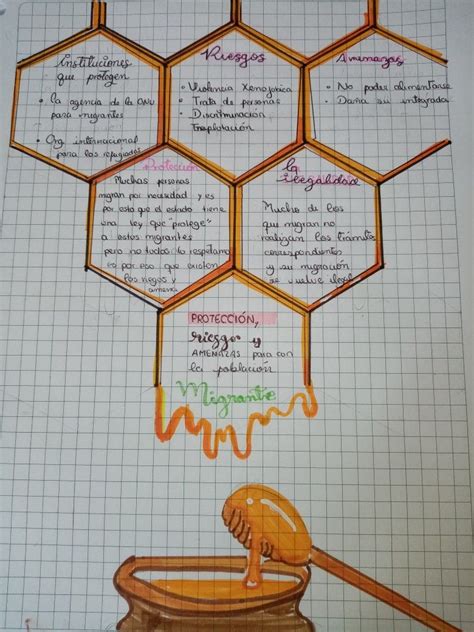 Instituciones
que protegen
• La agencia de la ONU
para migrantes
• Org internacional
para los refugiados
Riesgos
• Violencia Xenojonica
• Trata de personas
• Discriminación
Explotación
Amenazas
• No poder alimentarse
• Daña su integrada
Protección
Muchas personas
migran por necesidad y es
por esto que el estado tiene
una ley que "protege"
a estos migrantes
pero no todos lo respetamos
es por eso que existen
los riegos y
amenaz
la
ilegalidad
Mucho de los
que migran no
realizan los trámites
correspondientes
y su migración
se vuelve ilegal
PROTECCIÓN,
riesgos y
AMENAZAS para con
la población
Migrante